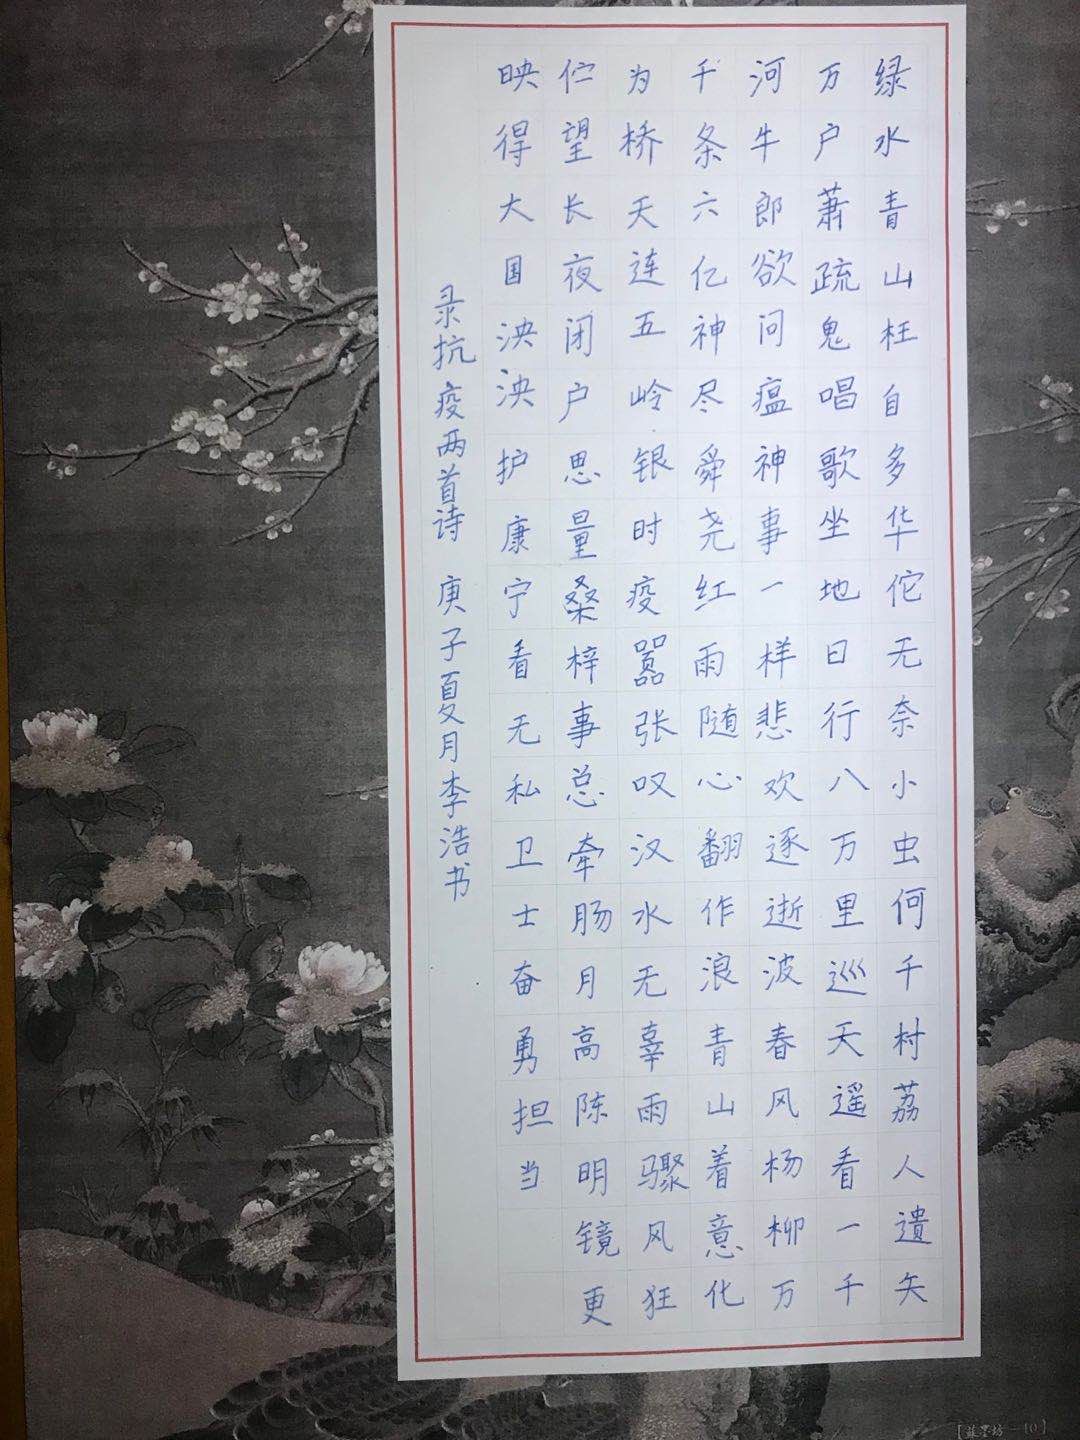 绿水青山枉自多华佗无奈小虫何千村荔人遗矢
万户萧疏鬼唱歌坐地日行八万里巡天遥看一千
河牛郎欲问瘟神事一样悲欢逐逝波春风杨柳万
千条六亿神尽舜尧红雨随心翻作浪青山着意化
为桥天连五岭银时疫嚣张叹汉水无辜雨骤风狂
伫望长夜闭户思量桑梓事总牵肠月高陈明镜更
映得大国泱泱护康宁看无私卫士奋勇担当
录抗疫两首诗 庚子夏月李浩书